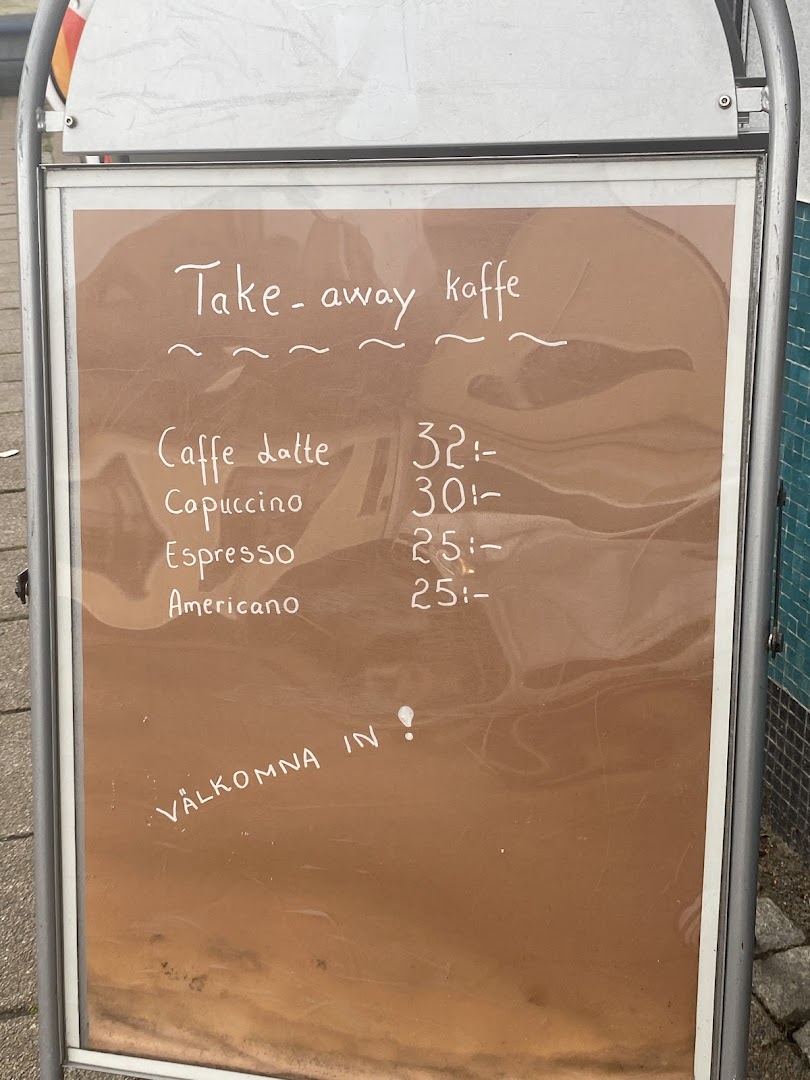 Take-away kaffe
~ ~ ~ ~ ~ ~
Caffe Latte 32:-
Capuccino 30:-
Espresso 25:-
Americano 25:-
VÄLKOMNA IN !